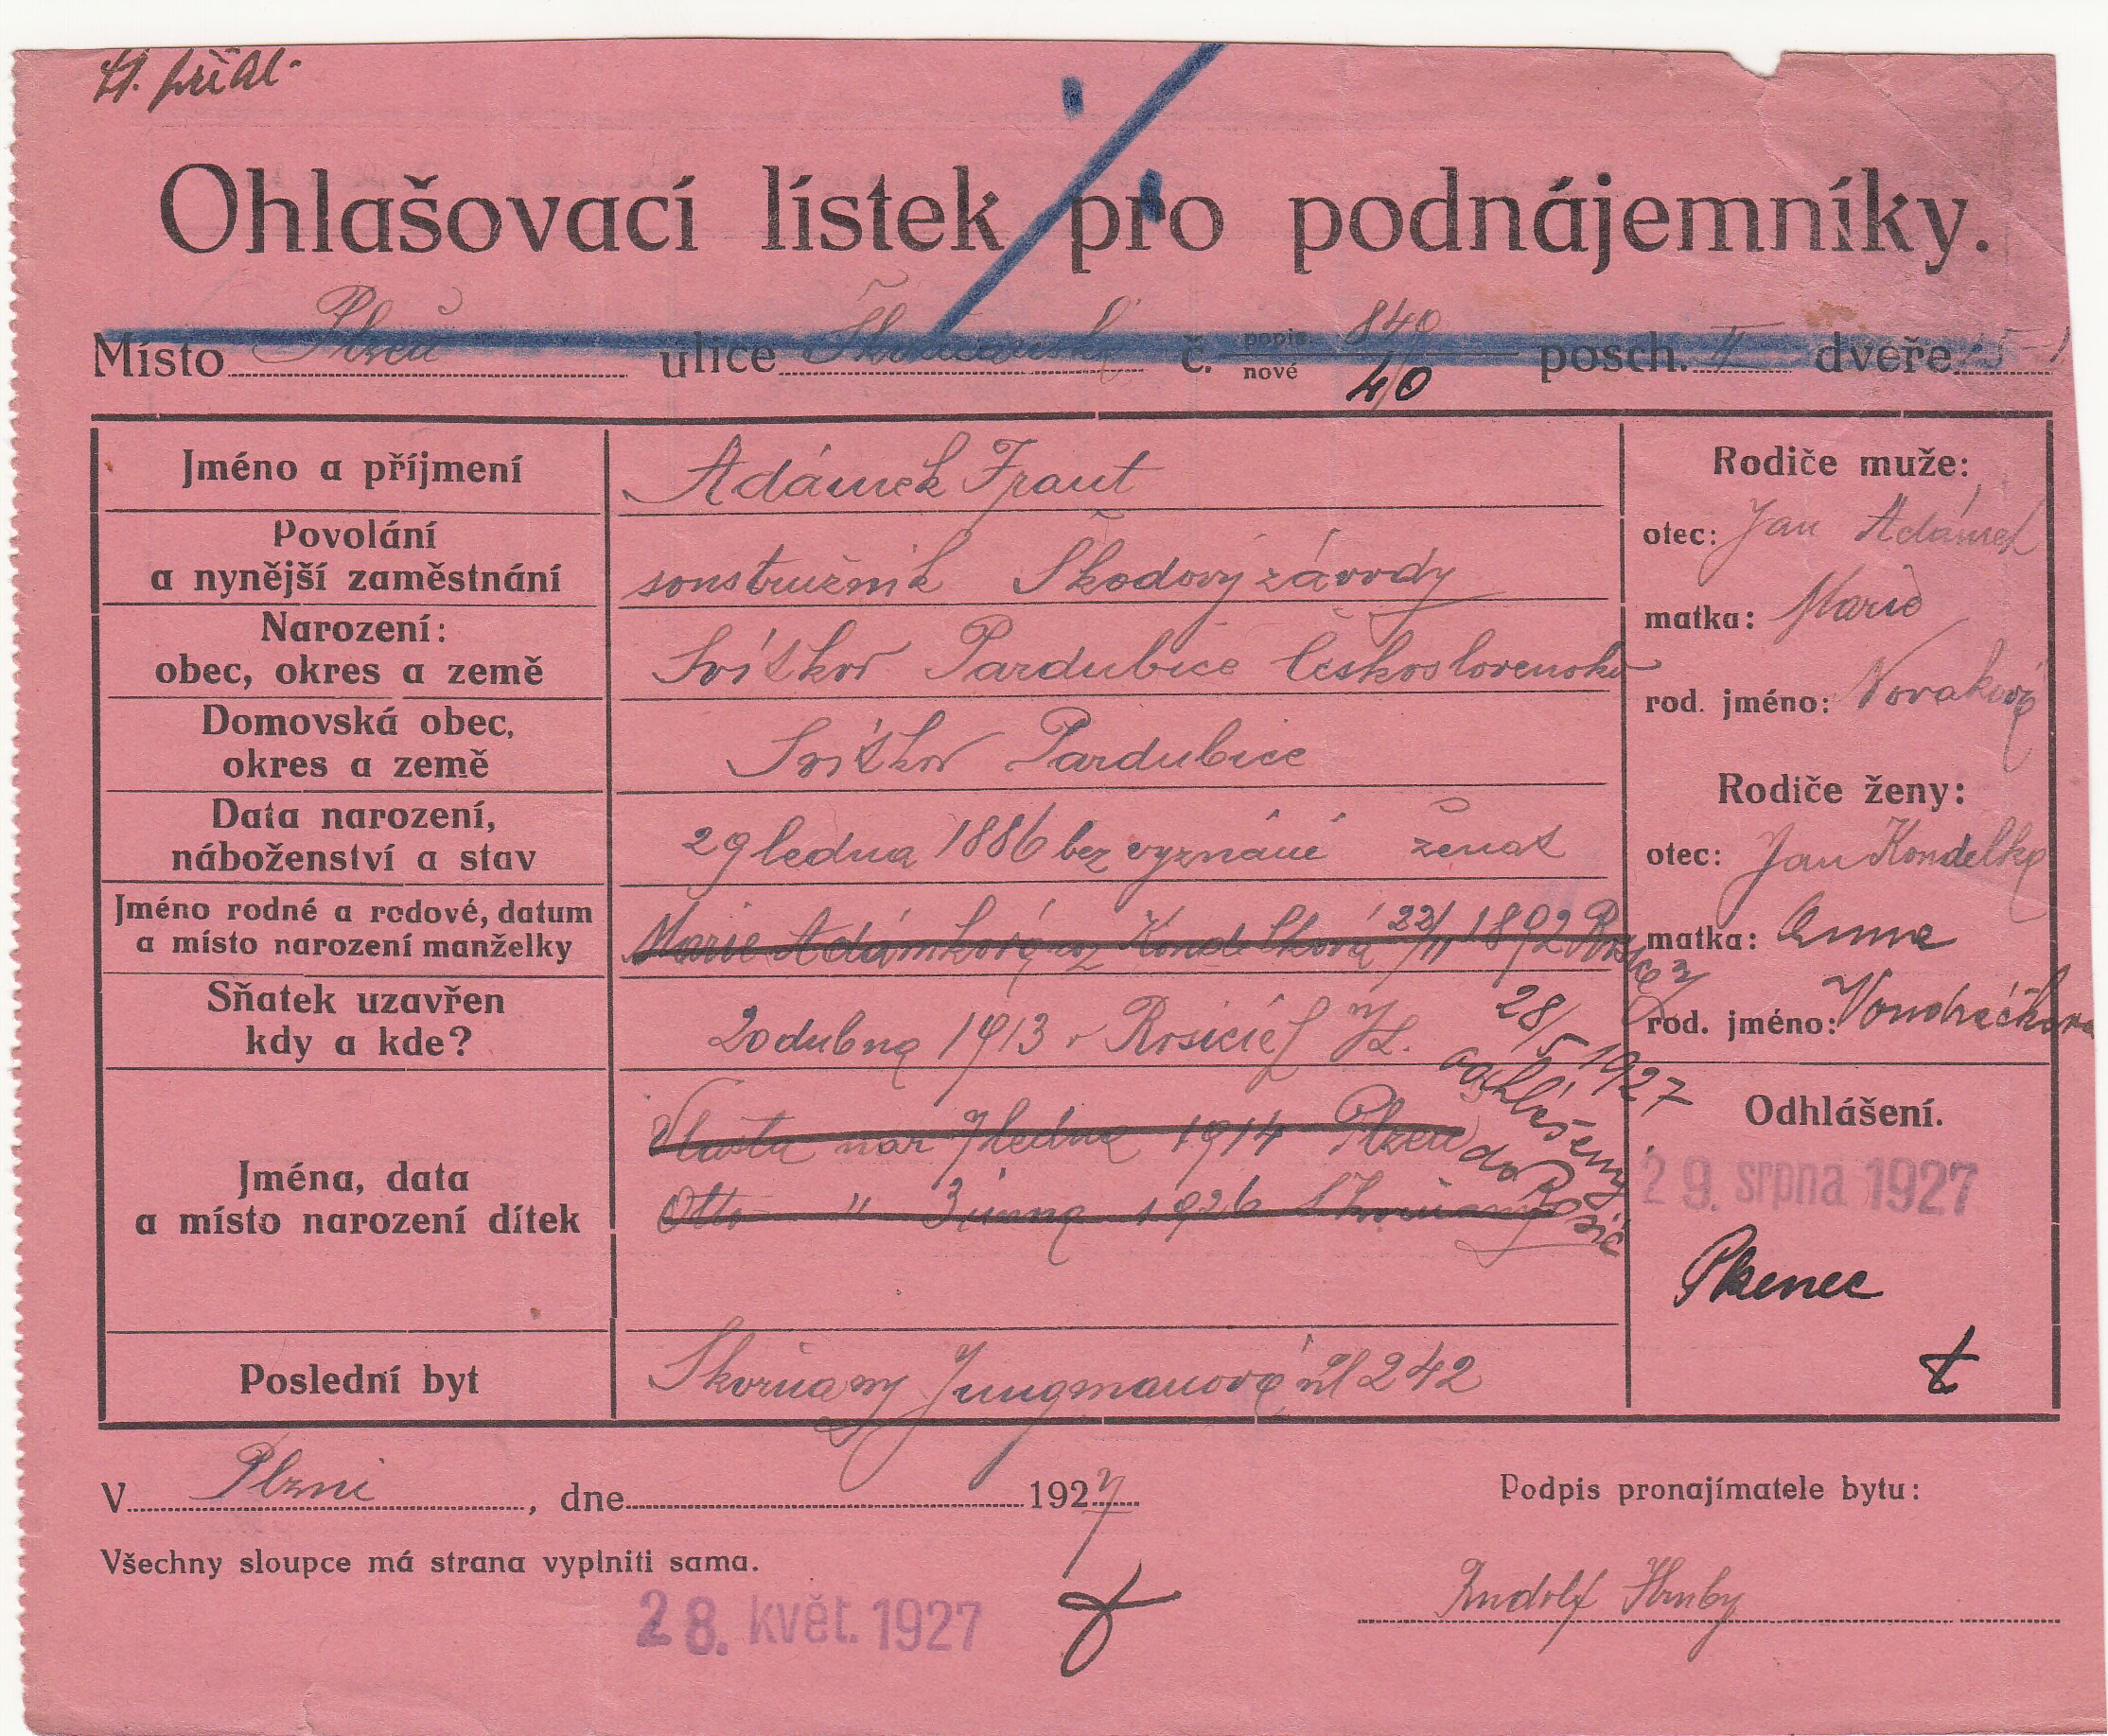 Ohlašovací lístek pro podnájemníky.
Místo Plzeň ulice č. popis. 840 posch. II dveře
nové 40
Jméno a příjmení Adámek Frant
Povolání
a nynější zaměstnání soustružník Škodovy závody
Narození:
obec, okres a země Svítkov Pardubice Československo
Domovská obec,
okres a země Svítkov Pardubice
Data narození,
náboženství a stav 29 ledna 1886 bez vyznání ženat
Jméno rodné a rodové, datum
a místo narození manželky Marie Adámková roz Kondelková 22/11 1892
Sňatek uzavřen
kdy a kde? 20 dubna 1913 v
Jména, data
a místo narození dítek
Vlasta nar 7 ledna 1914 Plzeň
Otto " 3 února 1926 Skvrňany
28/5 1927
odhlášeny
do Rosic
Poslední byt Skvrňany Jungmanová ul 242
Rodiče muže:
otec: Jan Adámek
matka: Marie
rod. jméno: Novaková
Rodiče ženy:
otec: Jan Kondelka
matka: Anna
rod. jméno: Vondráčkova
Odhlášení.
29. srpna 1927
V Plzni, dne 1927
Podpis pronajímatele bytu:
Všechny sloupce má strana vyplniti sama.
28. květ. 1927
Rudolf Hruby